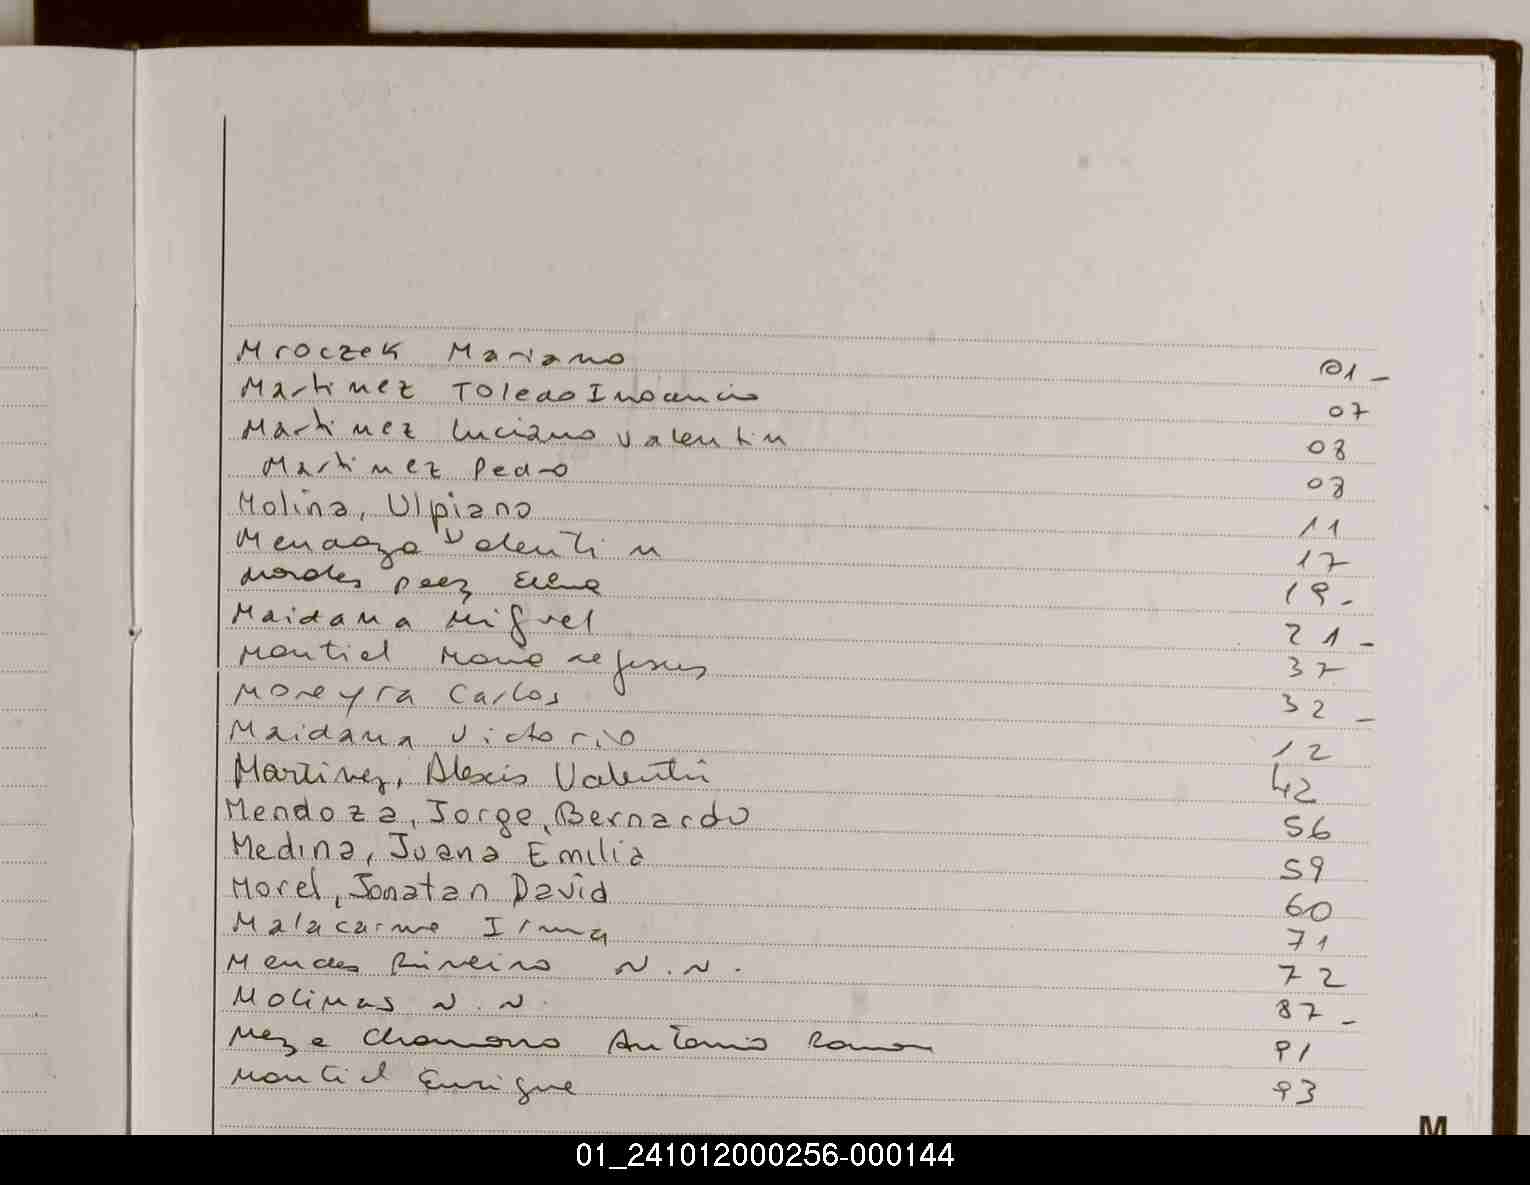 Mroczek Mariano 01 -
Martinez Toledo Inocencio 07
Martinez Luciano Valentin 08
Martinez Pedro 08
Molina, Ulpiano 11
Mendoza Valentin 17
Morales Paez Elena 19 -
Maidana Miguel 21 -
Montiel Maria de Jesus 37
Moreyra Carlos 32 -
Maidana Victorio 12
Martinez, Alexis Valentin 42
Mendoza, Jorge, Bernardo 56
Medina, Juana Emilia 59
Morel, Jonatan David 60
Malacarne Irma 71
Mendes Rineiro N.N. 72
Molinas N.N. 87 -
Meza Chamorro Antonio Ramon 91
Montiel Enrique 93
M
01_241012000256-000144